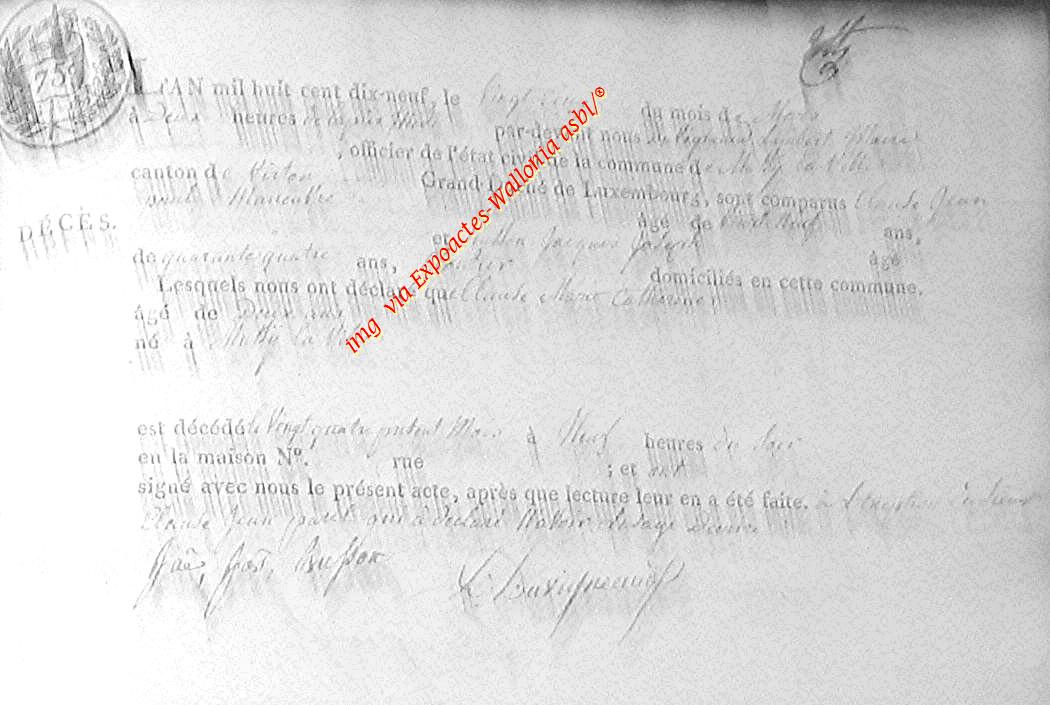 75
L'AN mil huit cent dix-neuf, le Vingt cinq du mois de Mars
à Deux heures après Midi par-devant nous Lambert Maire
, officier de l'état civil de la commune de Mussy la Ville
canton de Virton Grand-Duché de Luxembourg, sont comparus Claude Jean
âgé de ans,
et Busson Jacques Joseph âgé
de quarante quatre ans, domiciliés en cette commune.
Lesquels nous ont déclaré que Claude Marie Catherine
âgé de Deux ans
né à Mussy la Ville
DÉCÈS.
est décédé le Vingt quatre présent Mars à Neuf heures du Soir
en la maison N°. rue ; et ont
signé avec nous le présent acte, après que lecture leur en a été faite. à l'exception du
Claude Jean qui a déclaré
Jac, Jos, Busson
L Duvigneaud
img via Expoactes-Wallonia asbl/®